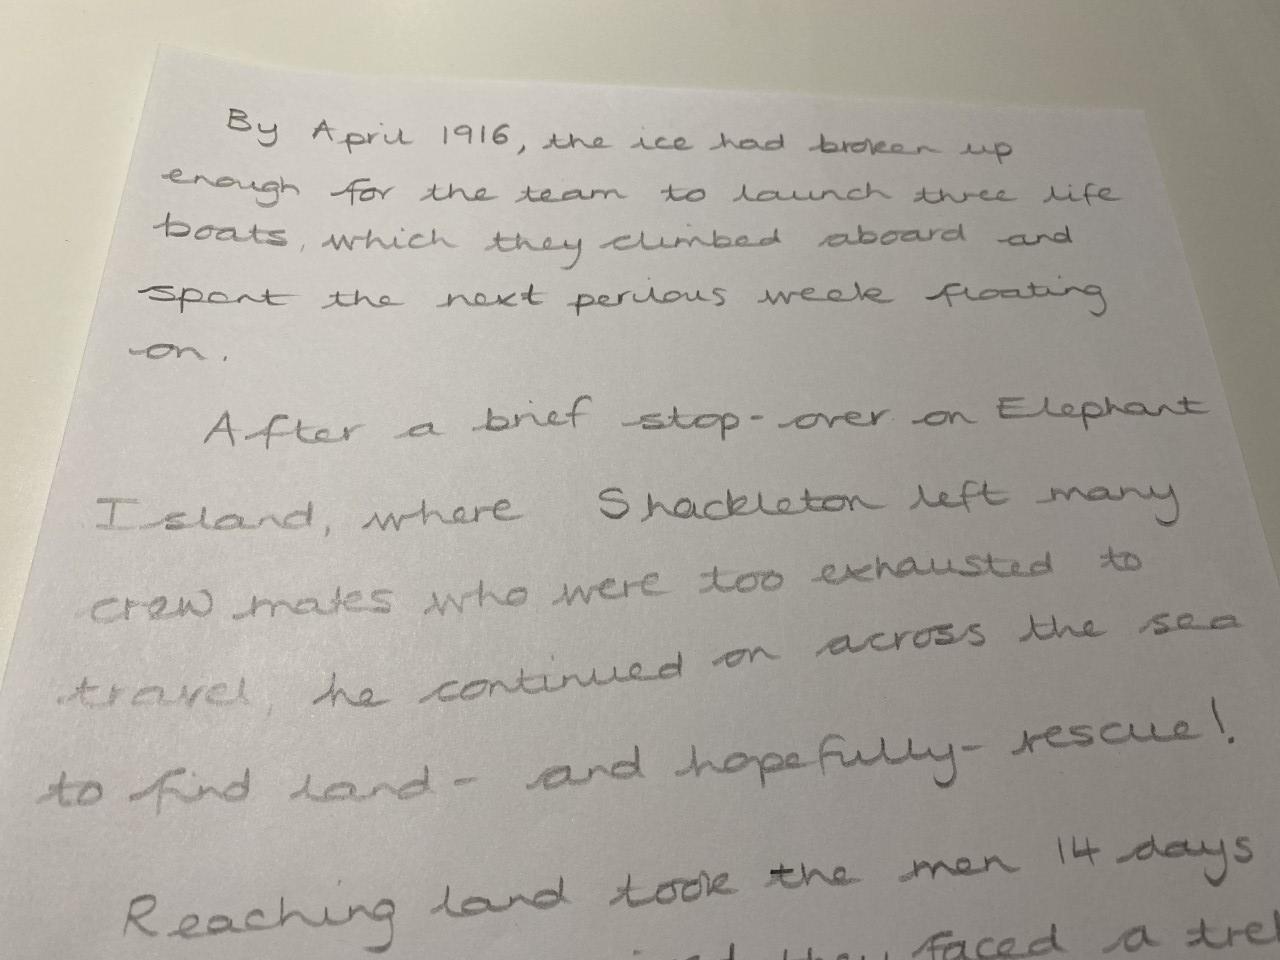 By April 1916, the ice had broken up
enough for the team to launch three life
boats, which they climbed aboard and
spent the next perilous week floating
on.
After a brief stop-over on Elephant
Island, where Shackleton left many
crew mates who were too exhausted to
travel, he continued on across the sea
to find land - and hopefully - rescue!
Reaching land took the men 14 days
they faced a